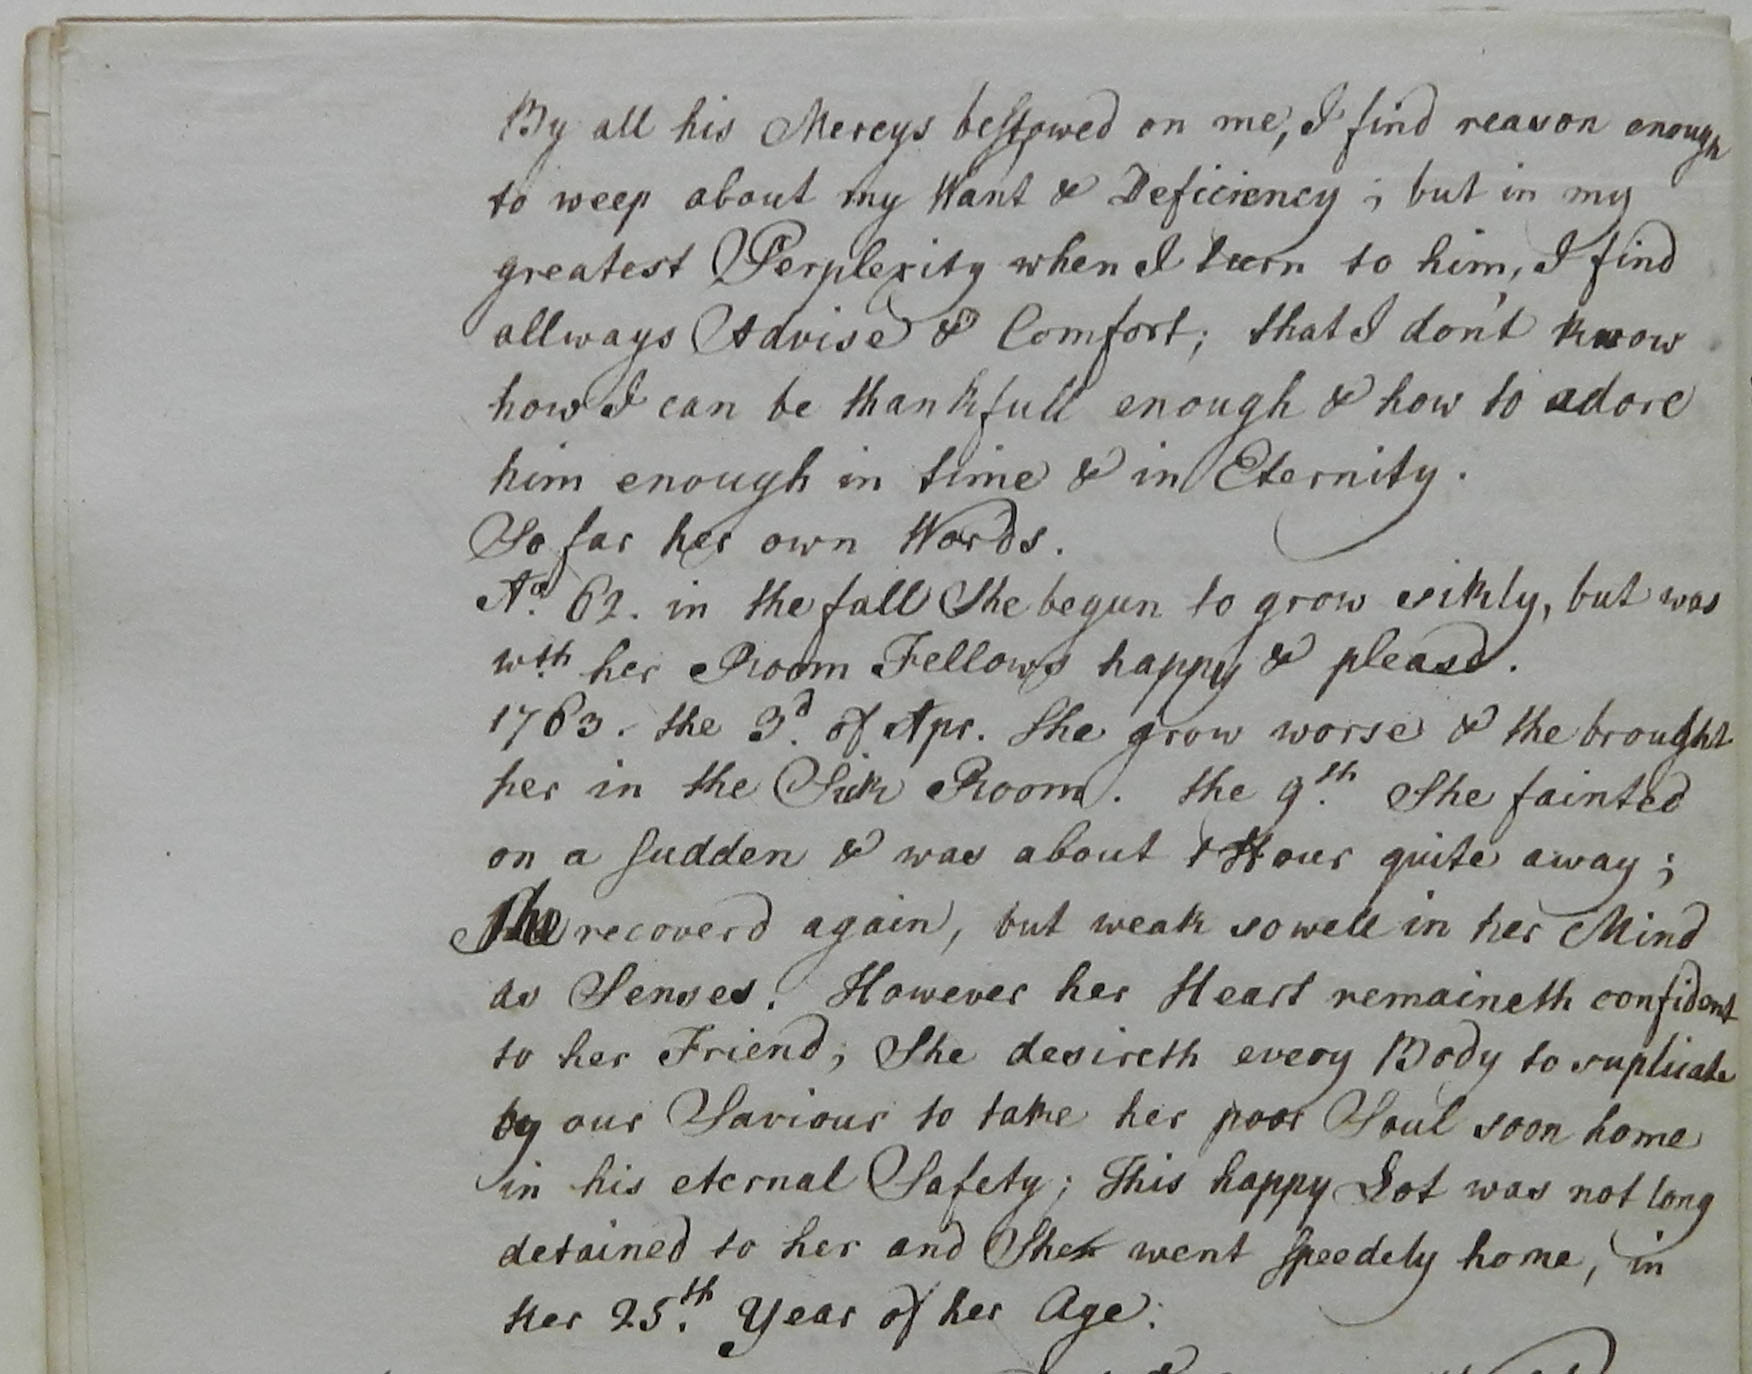 By all his Mercys bestowed on me, I find reason enough
to weep about my Want & Deficiency; but in my
greatest Perplexity when I turn to him, I find
allways Advise & Comfort; that I don't know
how I can be thankfull enough & how to adore
him enough in time & in Eternity.
So far her own Words.
Ao. 62. in the fall She begun to grow sikly, but was
wth. her Room Fellows happy & pleasd.
1763. the 3d. of Apr. She grow worse & the brought
her in the Sik Room. the 9.th She fainted
on a sudden & was about 1 Hour quite away;
She recoverd again, but weak sowell in her Mind
as Senses. However her Heart remaineth confident
to her Friend; She desireth every Body to suplicate
by our Saviour to take her poor Soul soon home
in his eternal Safety; This happy Lot was not long
detained to her and She went speedely home, in
her 25.th Year of her Age.